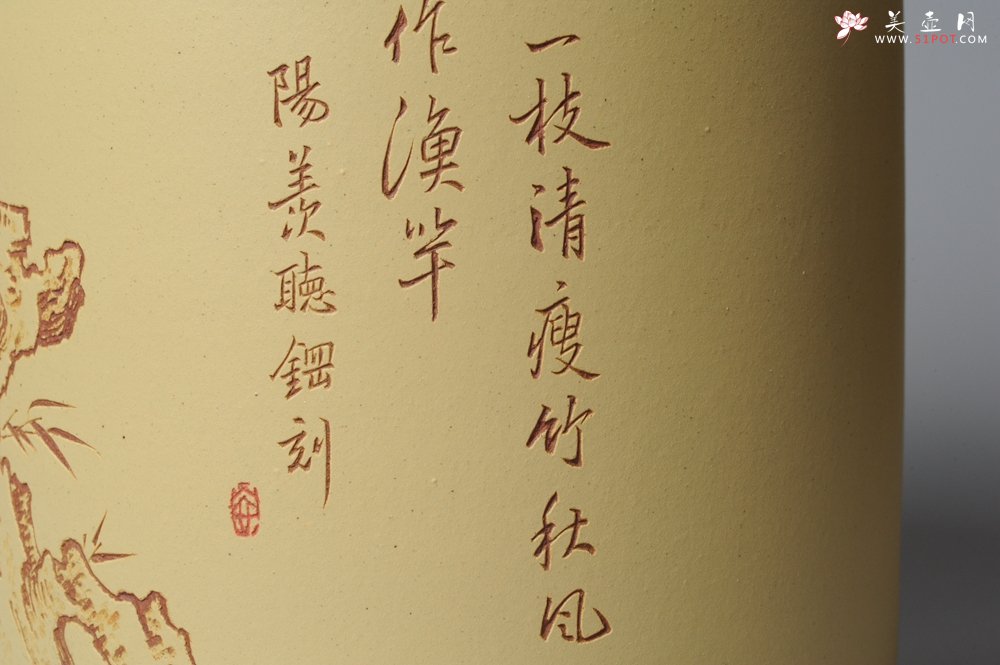 一枝清瘦竹秋風
作漁竿
陽羨聽鋼刻
美壶网
WWW.51POT.COM